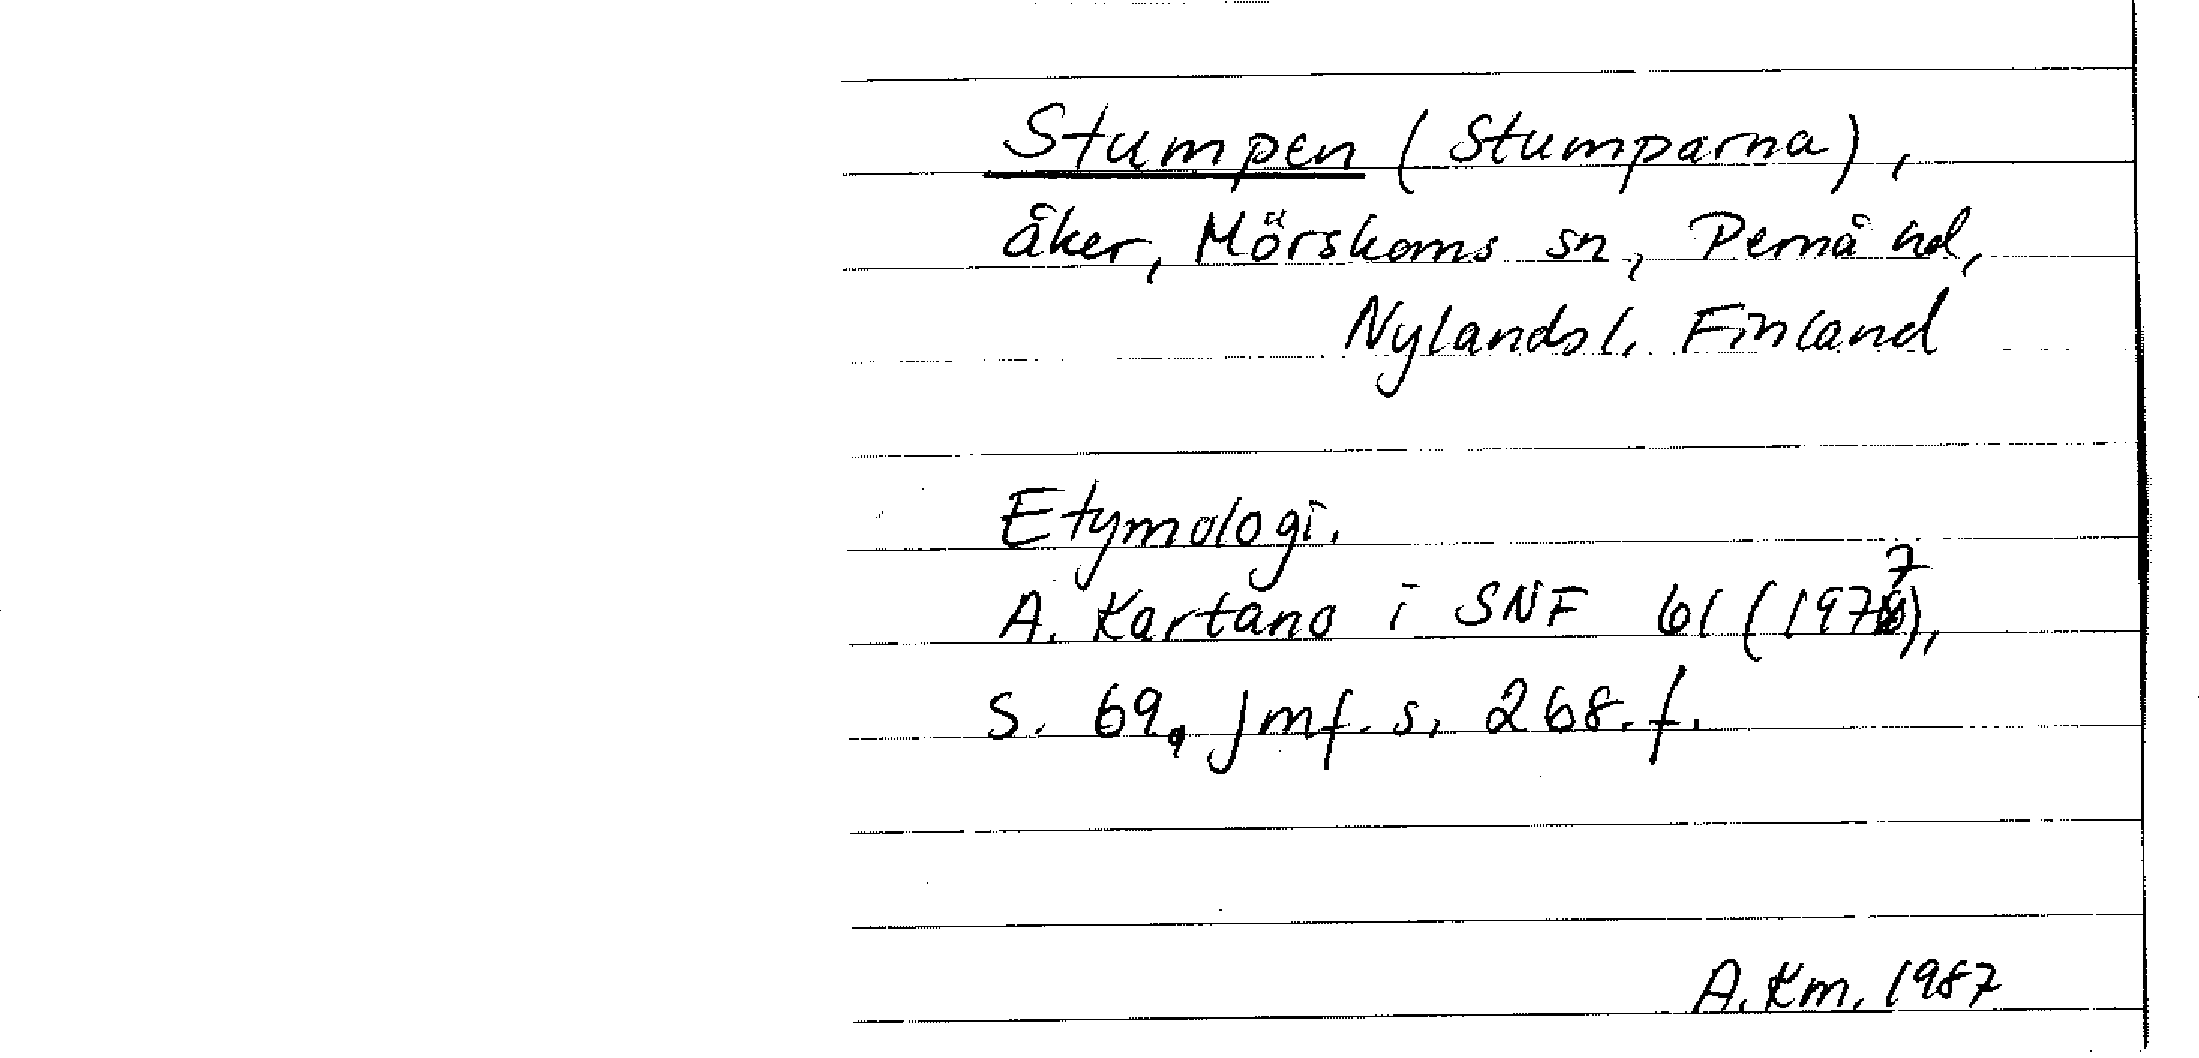 Stumpen (Stumparna),
åker, Mörskoms sn, Pernå hd,
Nylands l. Finland
Etymologi.
A. Kartano i SNF 61 (1977),
s. 69, jmf. s. 268.f.
A. Km. 1987